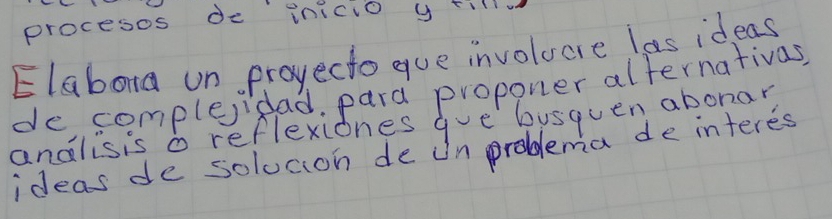 procesos de inicio y fin.
Elabora un proyecto que involucre las ideas
de complejidad. para proponer alternativas,
análisis o reflexiones que busquen abonar
ideas de solución de un problema de interés